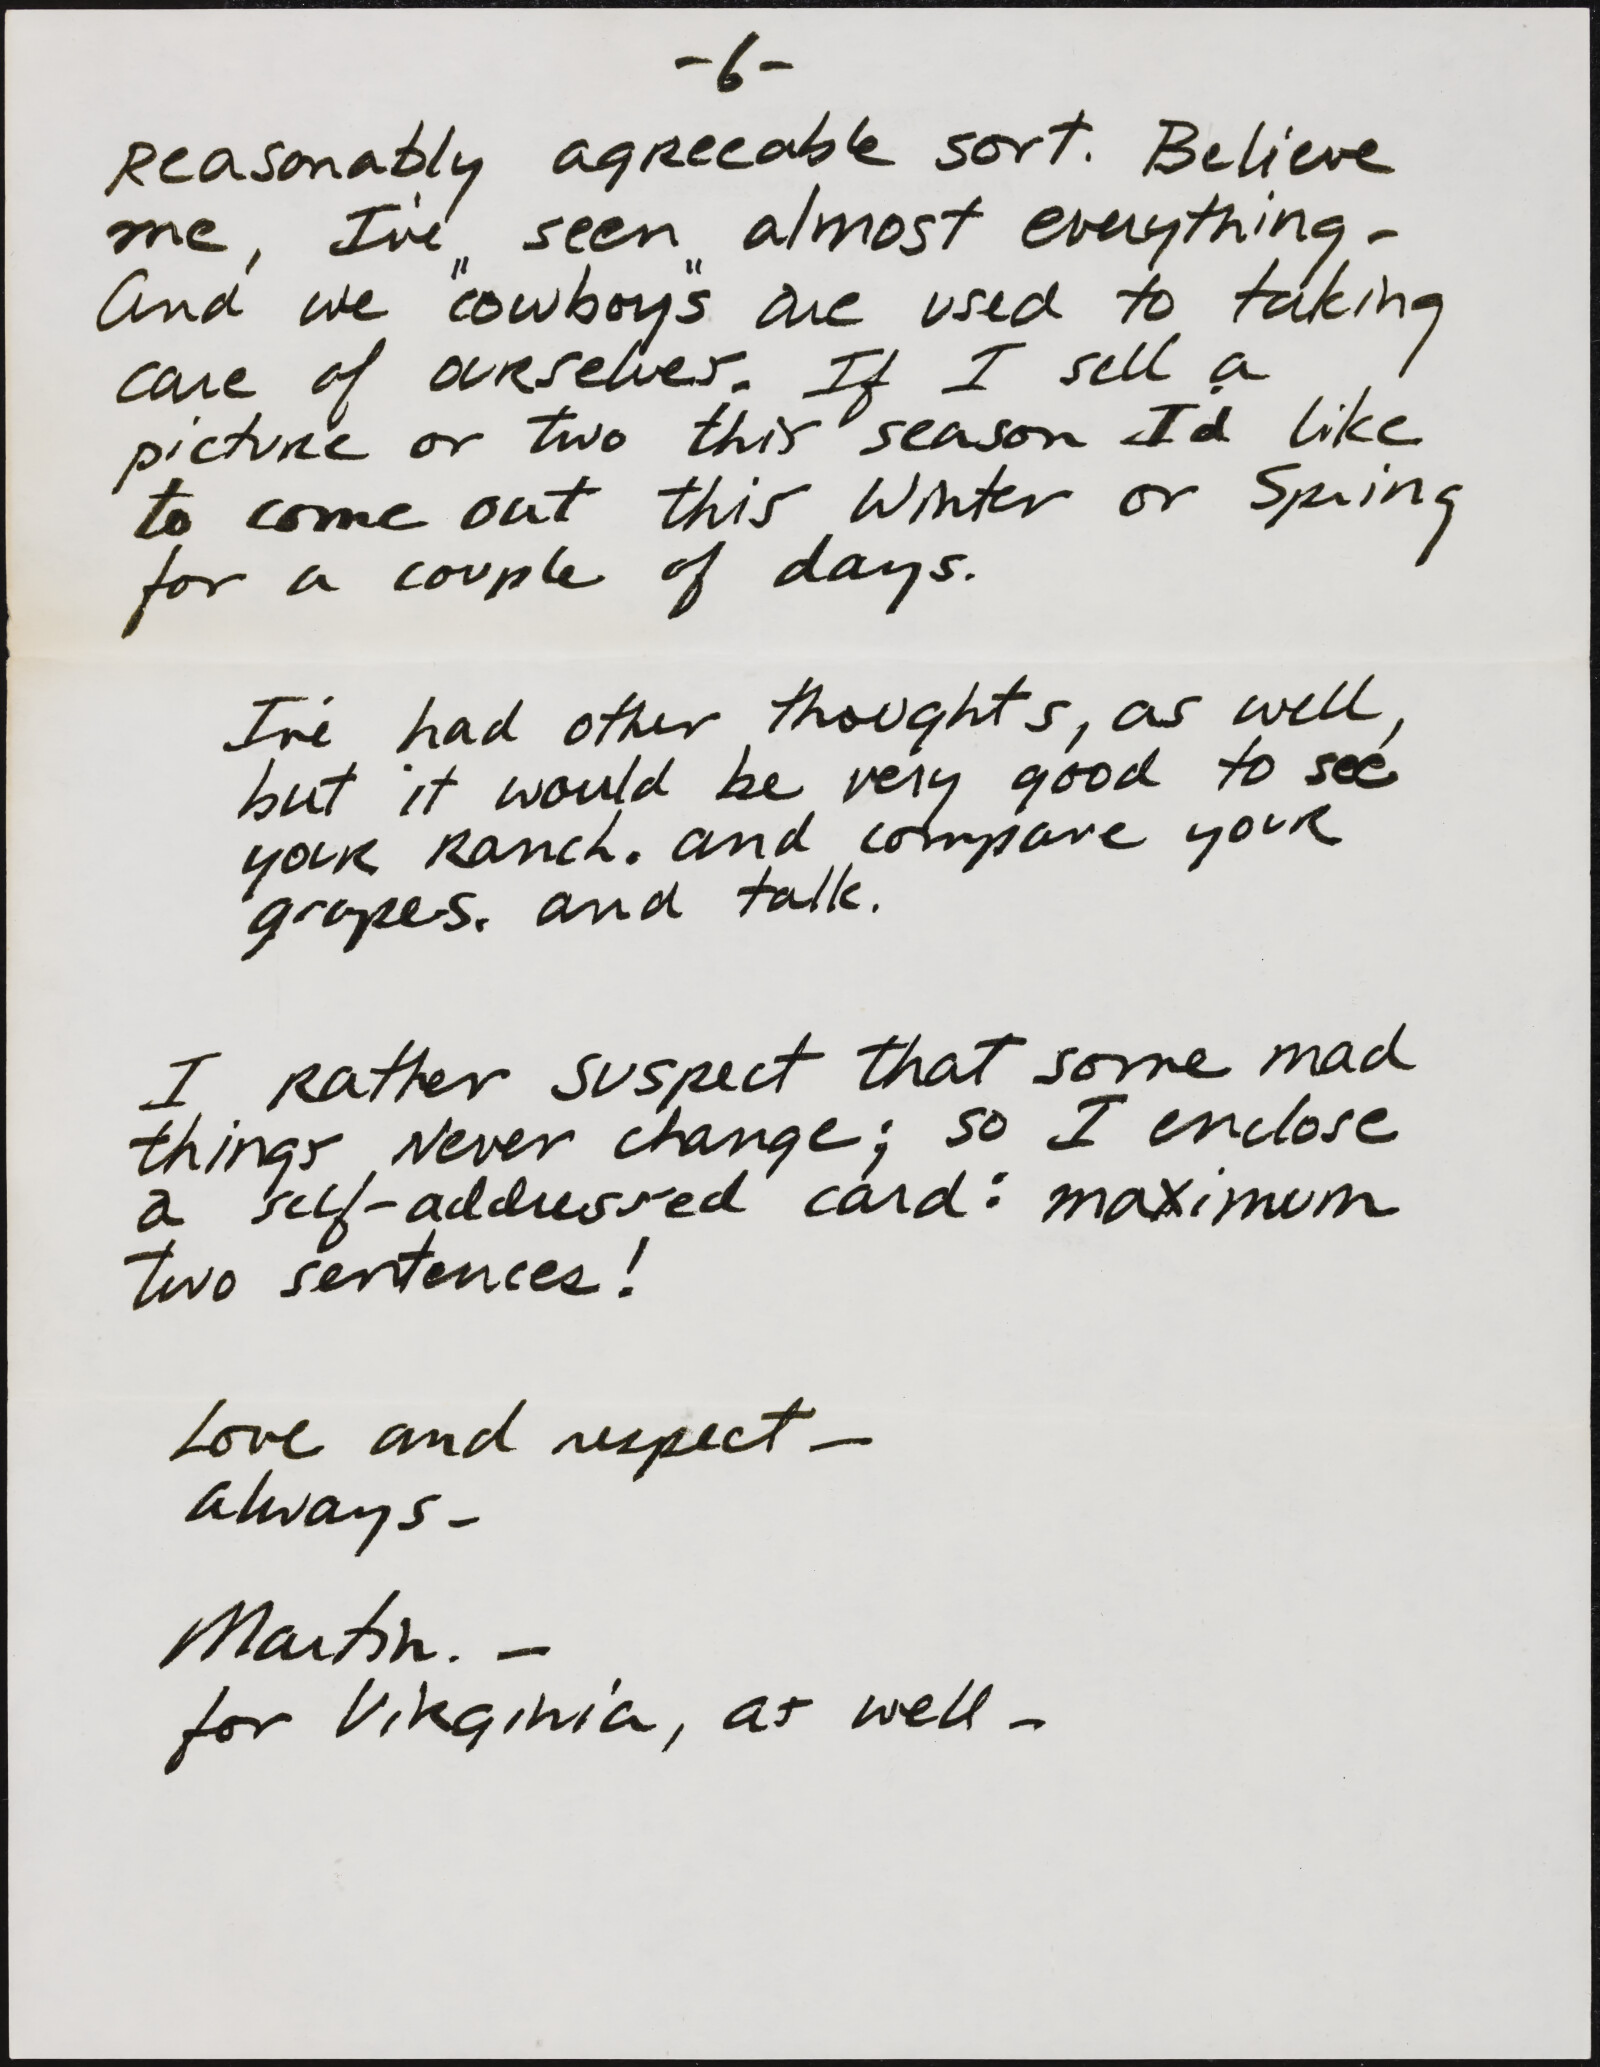 -6-
Reasonably agreeable sort. Believe
me, I've seen almost everything-
and we "cowboys" are used to taking
care of ourselves. If I sell a
picture or two this season I'd like
to come out this Winter or Spring
for a couple of days.
I've had other thoughts, as well,
but it would be very good to see
your Ranch. and compare your
grapes. and talk.
I Rather suspect that some mad
things Never change; so I enclose
a self-addressed card: maximum
two sentences!
Love and respect-
always-
Martin. -
for Virginia, as well-